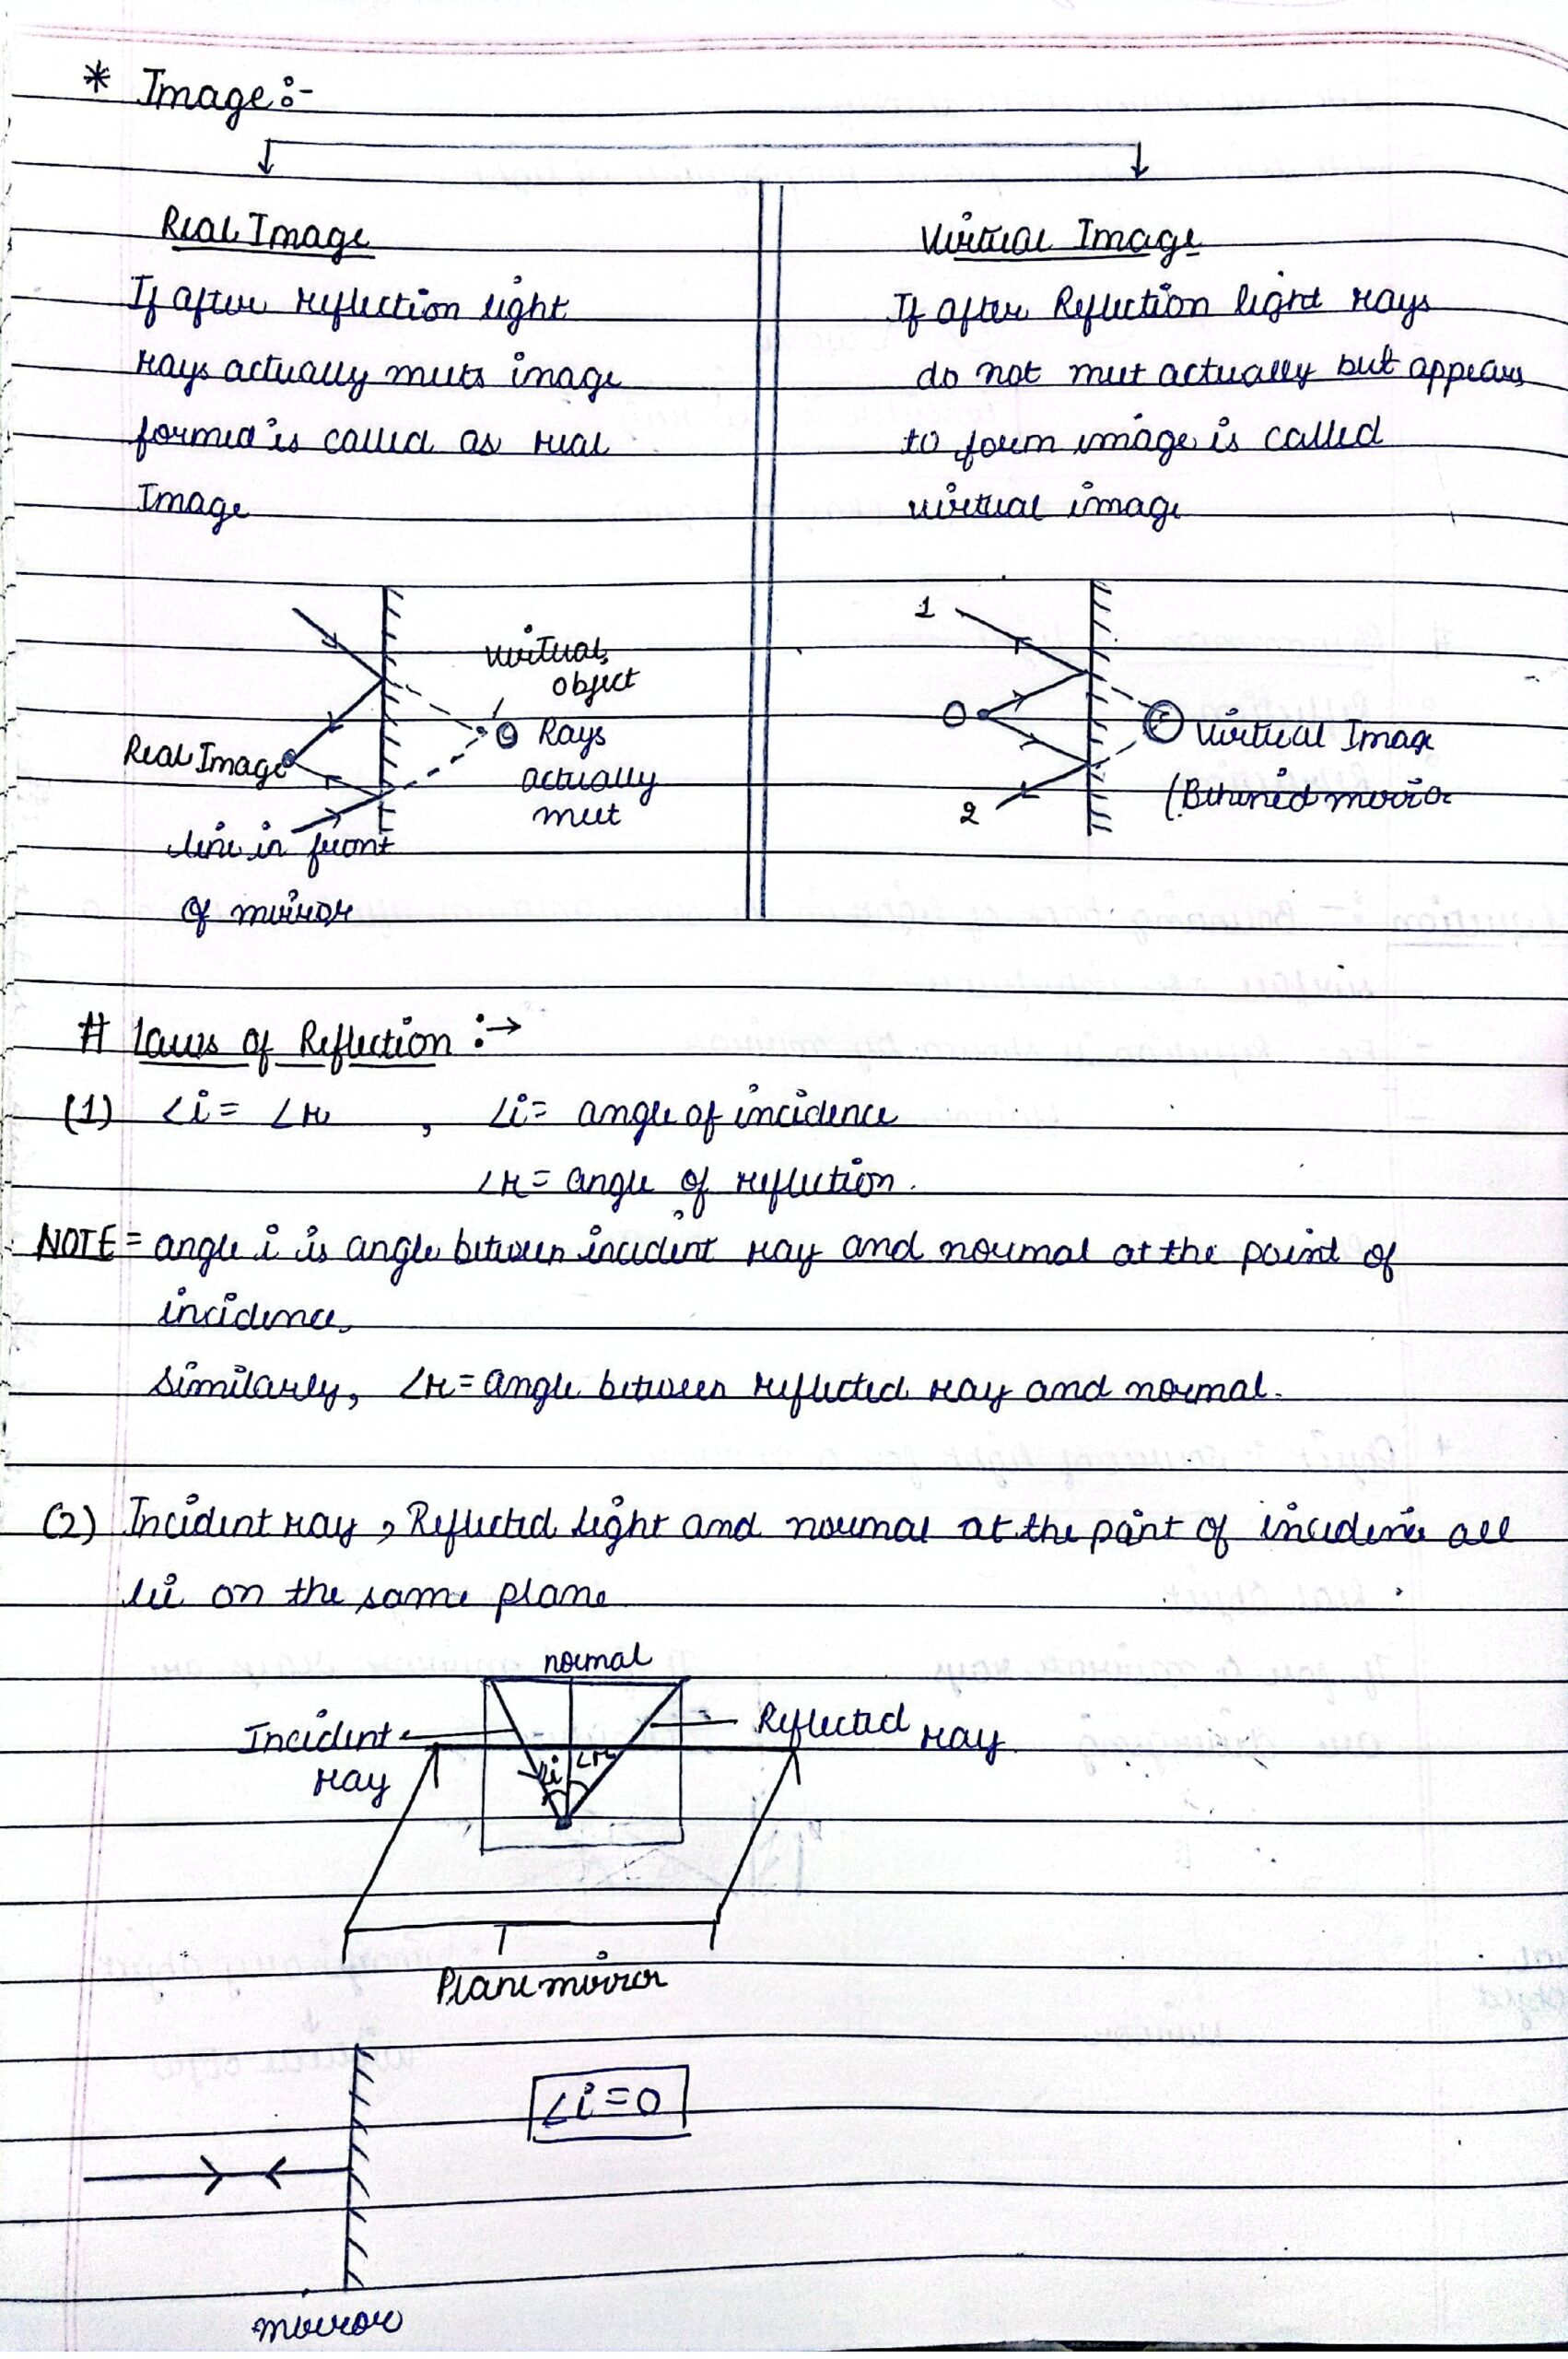 * Image :-
Real Image
If after reflection light
rays actually meets image
formed is called as real
Image
Virtual Image
If after Reflection light rays
do not meet actually but appears
to form image is called
virtual image
virtual
object
Rays
actually
meet
Real Image
line in front
of mirror
1
O
2
Virtual Imag
(Behined mirror
# Laws of Reflection :→
(1) ∠i = ∠r , ∠i = angle of incidence
∠r = angle of reflection.
NOTE = angle i is angle between incident ray and normal at the point of
incidence.
Similarly, ∠r = angle between reflected ray and normal.
(2) Incident ray, Reflected light and normal at the point of incidence all
lie on the same plane
normal
Incident
ray
Reflected ray
∠i ∠r
Plane mirror
∠i = 0
mirror